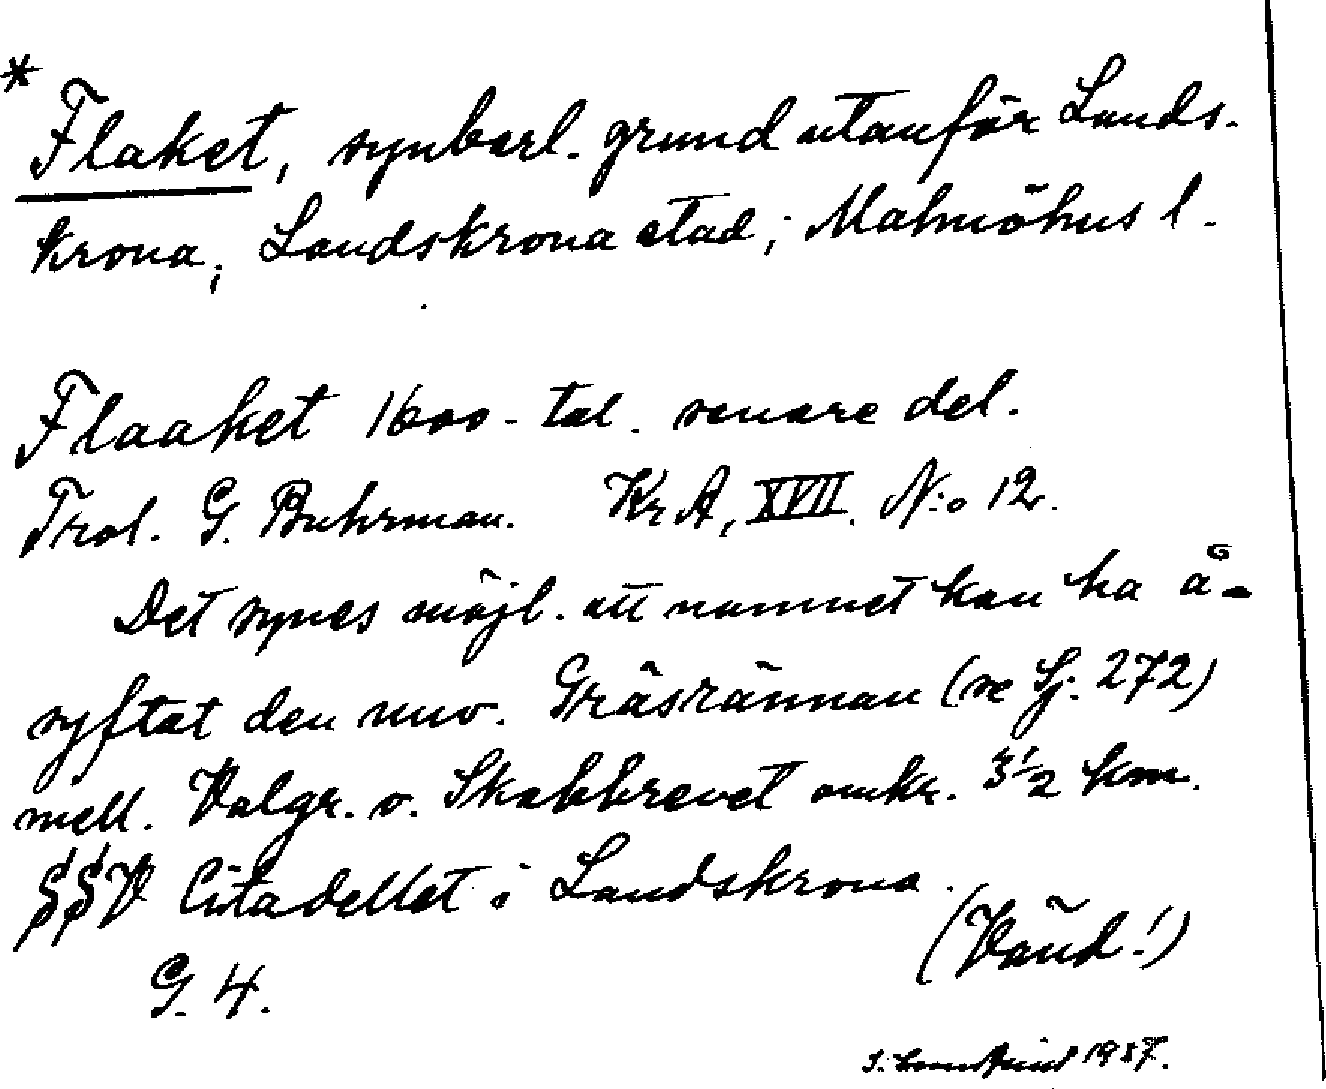 * Flaket, synbarl. grund utanför Lands-
krona; Landskrona stad; Malmöhus l.
Flaaket 1600-tal. senare del.
Trol. G. Buhrman. KrA, XVII. N:o 12.
Det synes möjl. att namnet kan ha å-
syftat den nuv. Gräsrännan (se Sj. 272)
mell. Valgr. o. Skabbrevet omkr. 3 1/2 km.
SSV Citadellet i Landskrona.
(Vänd!)
G. 4.
1937.